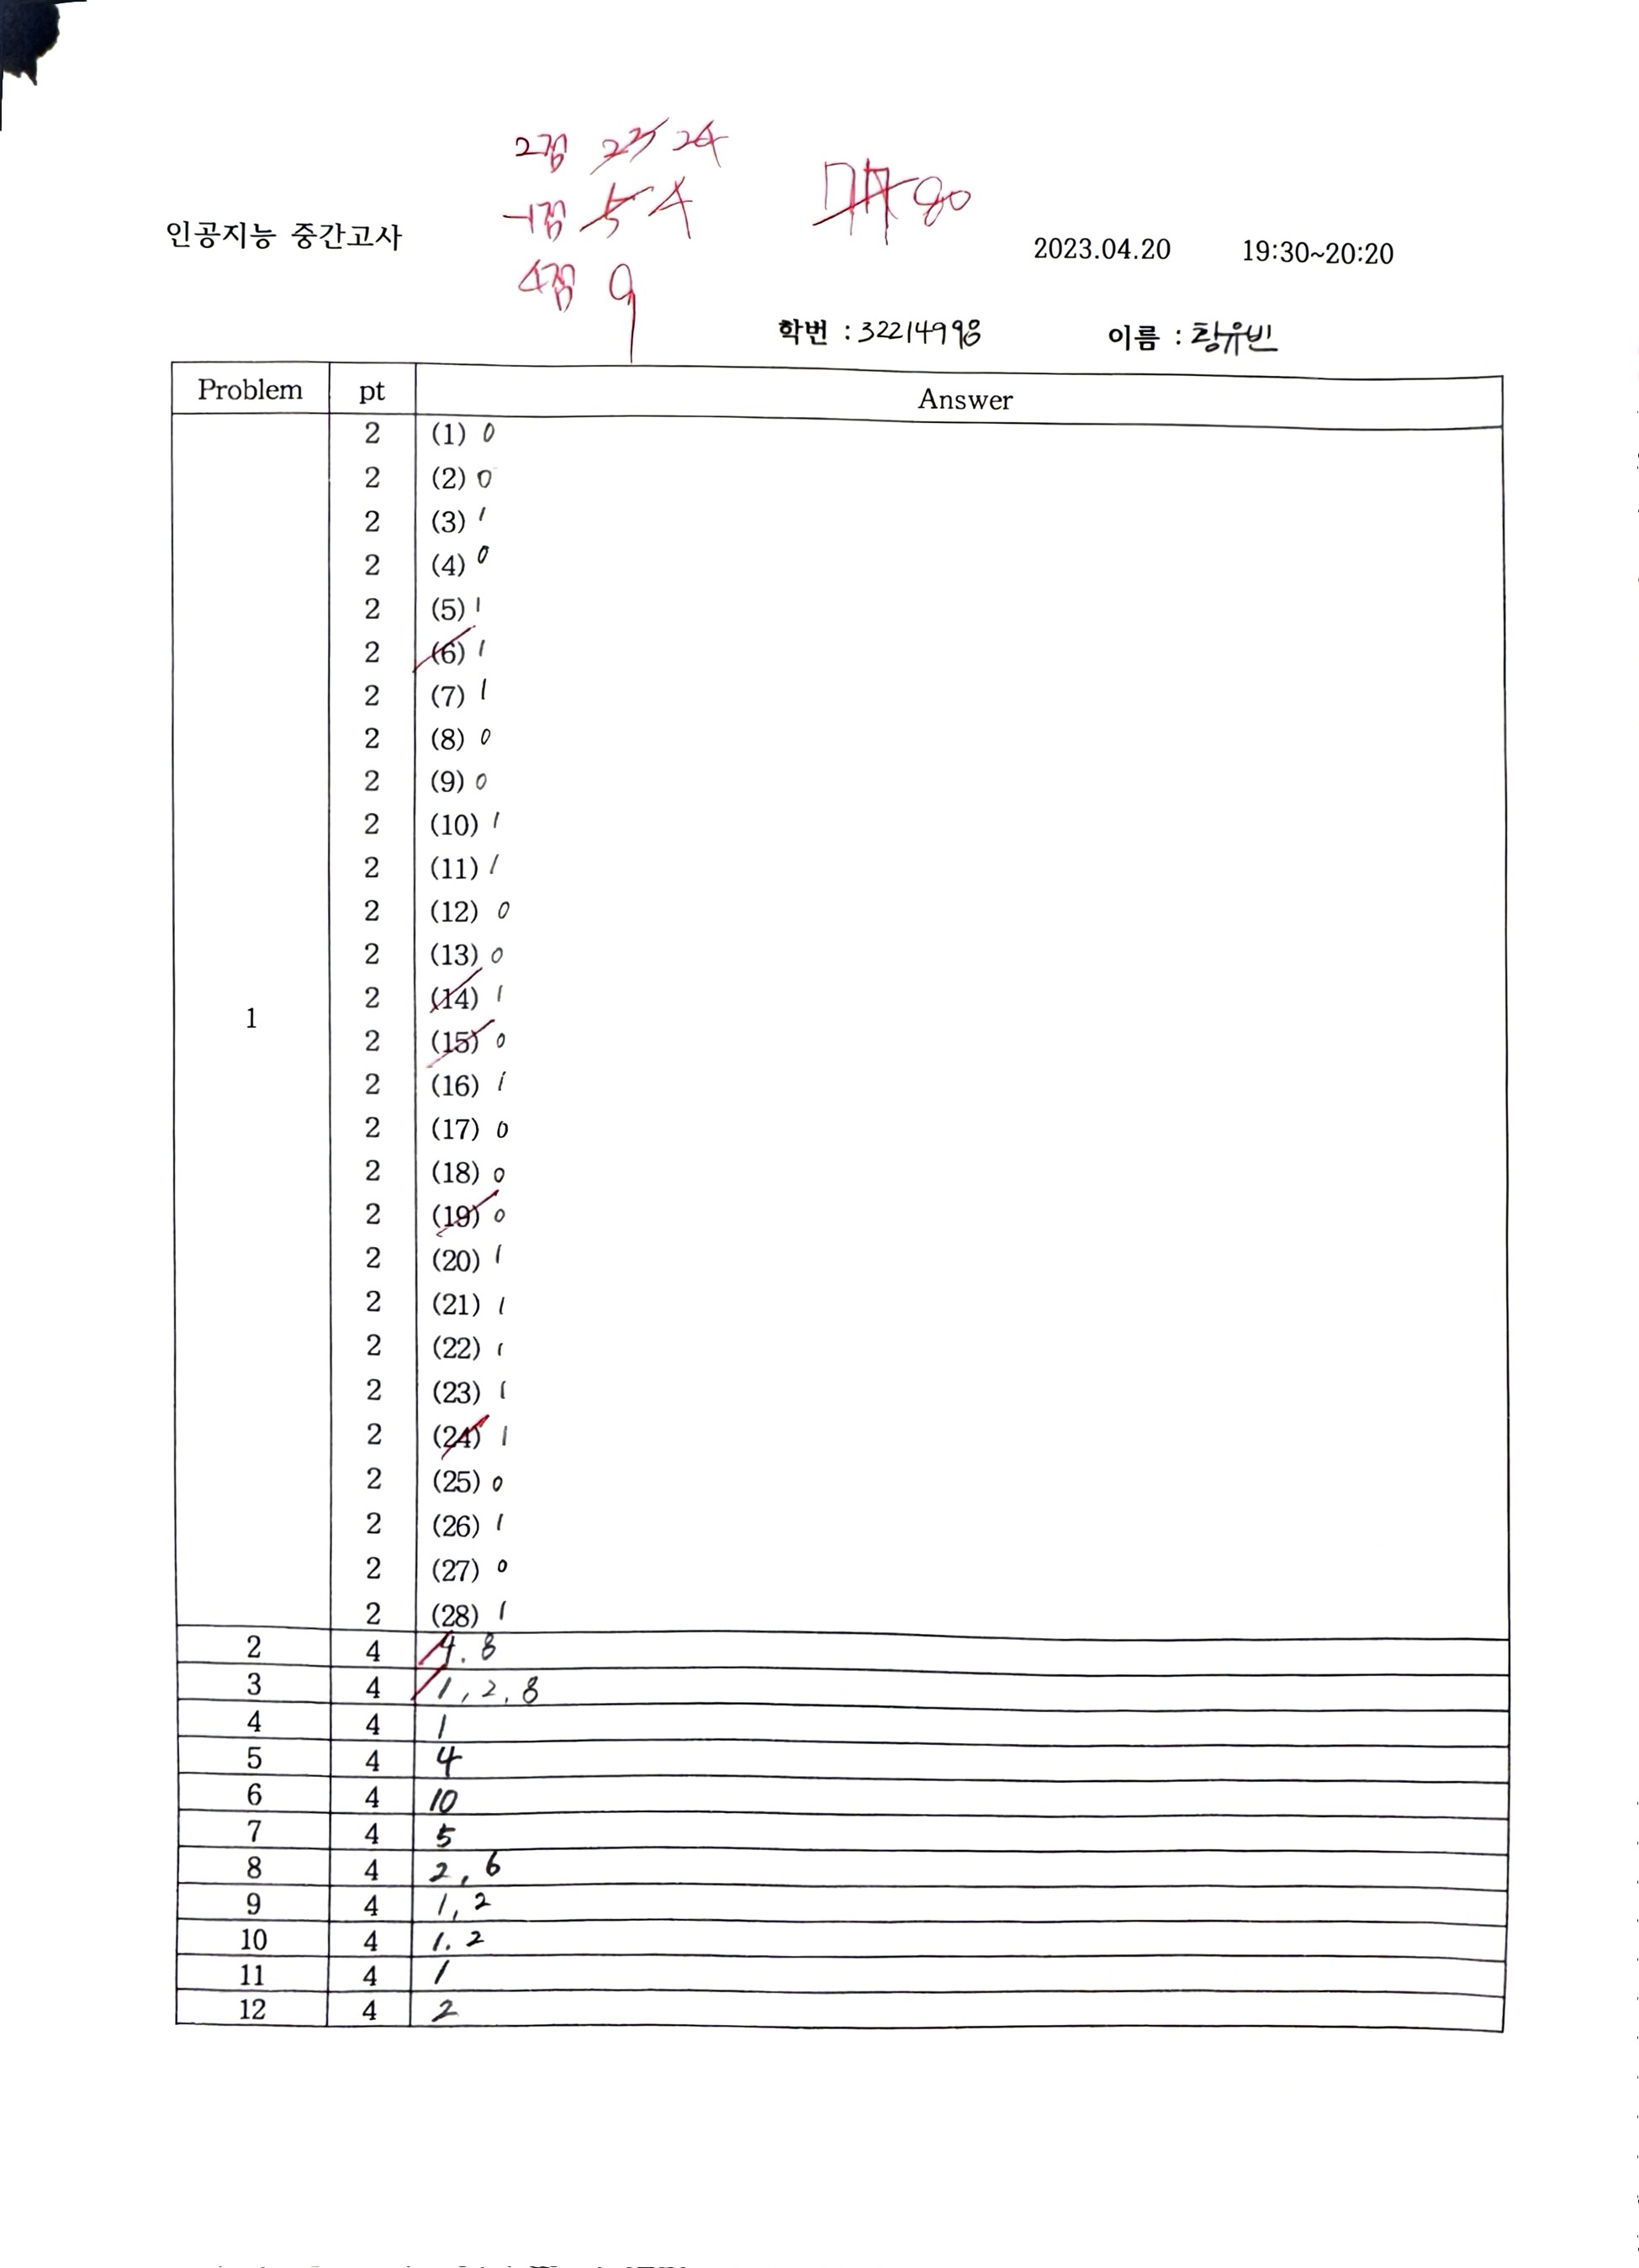 2점 23 24
-1점 5 4
77 80
인공지능 중간고사
2023.04.20 19:30~20:20
4점 9
학번 : 32214998 이름 : 황유빈
Problem pt Answer
1
2 (1) 0
2 (2) 0
2 (3) 1
2 (4) 0
2 (5) 1
2 (6) 1
2 (7) 1
2 (8) 0
2 (9) 0
2 (10) 1
2 (11) 1
2 (12) 0
2 (13) 0
2 (14) 1
2 (15) 0
2 (16) 1
2 (17) 0
2 (18) 0
2 (19) 0
2 (20) 1
2 (21) 1
2 (22) 1
2 (23) 1
2 (24) 1
2 (25) 0
2 (26) 1
2 (27) 0
2 (28) 1
2 4 4. 8
3 4 1, 2, 8
4 4 1
5 4 4
6 4 10
7 4 5
8 4 2, 6
9 4 1, 2
10 4 1. 2
11 4 1
12 4 2